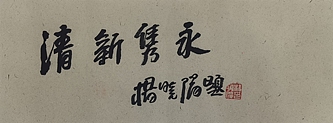 清新隽永
杨晓阳题